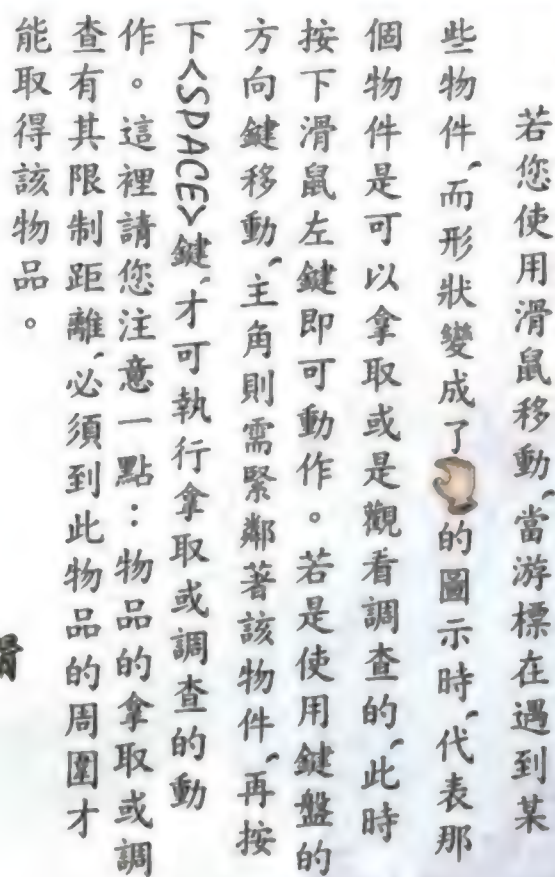 若您使用滑鼠移動，當游標在遇到某
些物件，而形狀變成了的圖示時，代表那
個物件是可以拿取或是觀看調查的，此時
按下滑鼠左鍵即可動作。若是使用鍵盤的
方向鍵移動，主角則需緊鄰著該物件，再按
下<SPACE>鍵，才可執行拿取或調查的動
作。這裡請您注意一點：物品的拿取或調
查有其限制距離，必須到此物品的周圍才
能取得該物品。